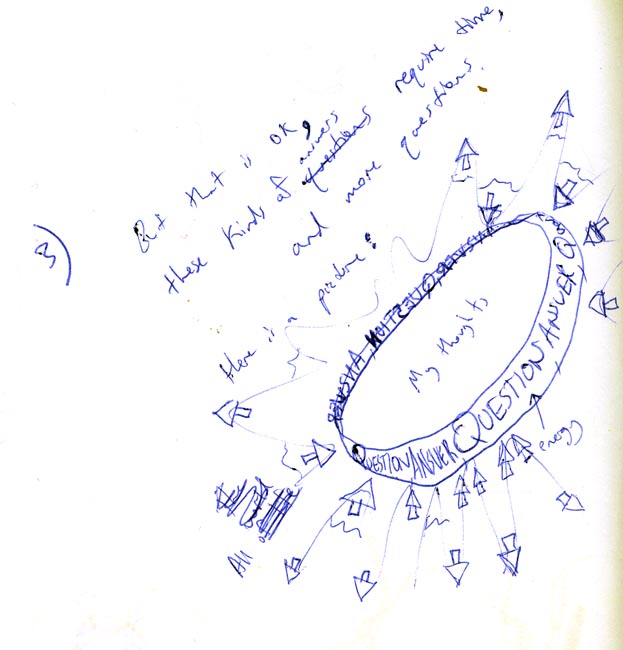 3)
But that is OK,
these kinds of questions answers require time,
and more questions.
Here is a picture:
My thoughts
QUESTION ANSWER QUESTION ANSWER QUESTION ANSWER
energy
All